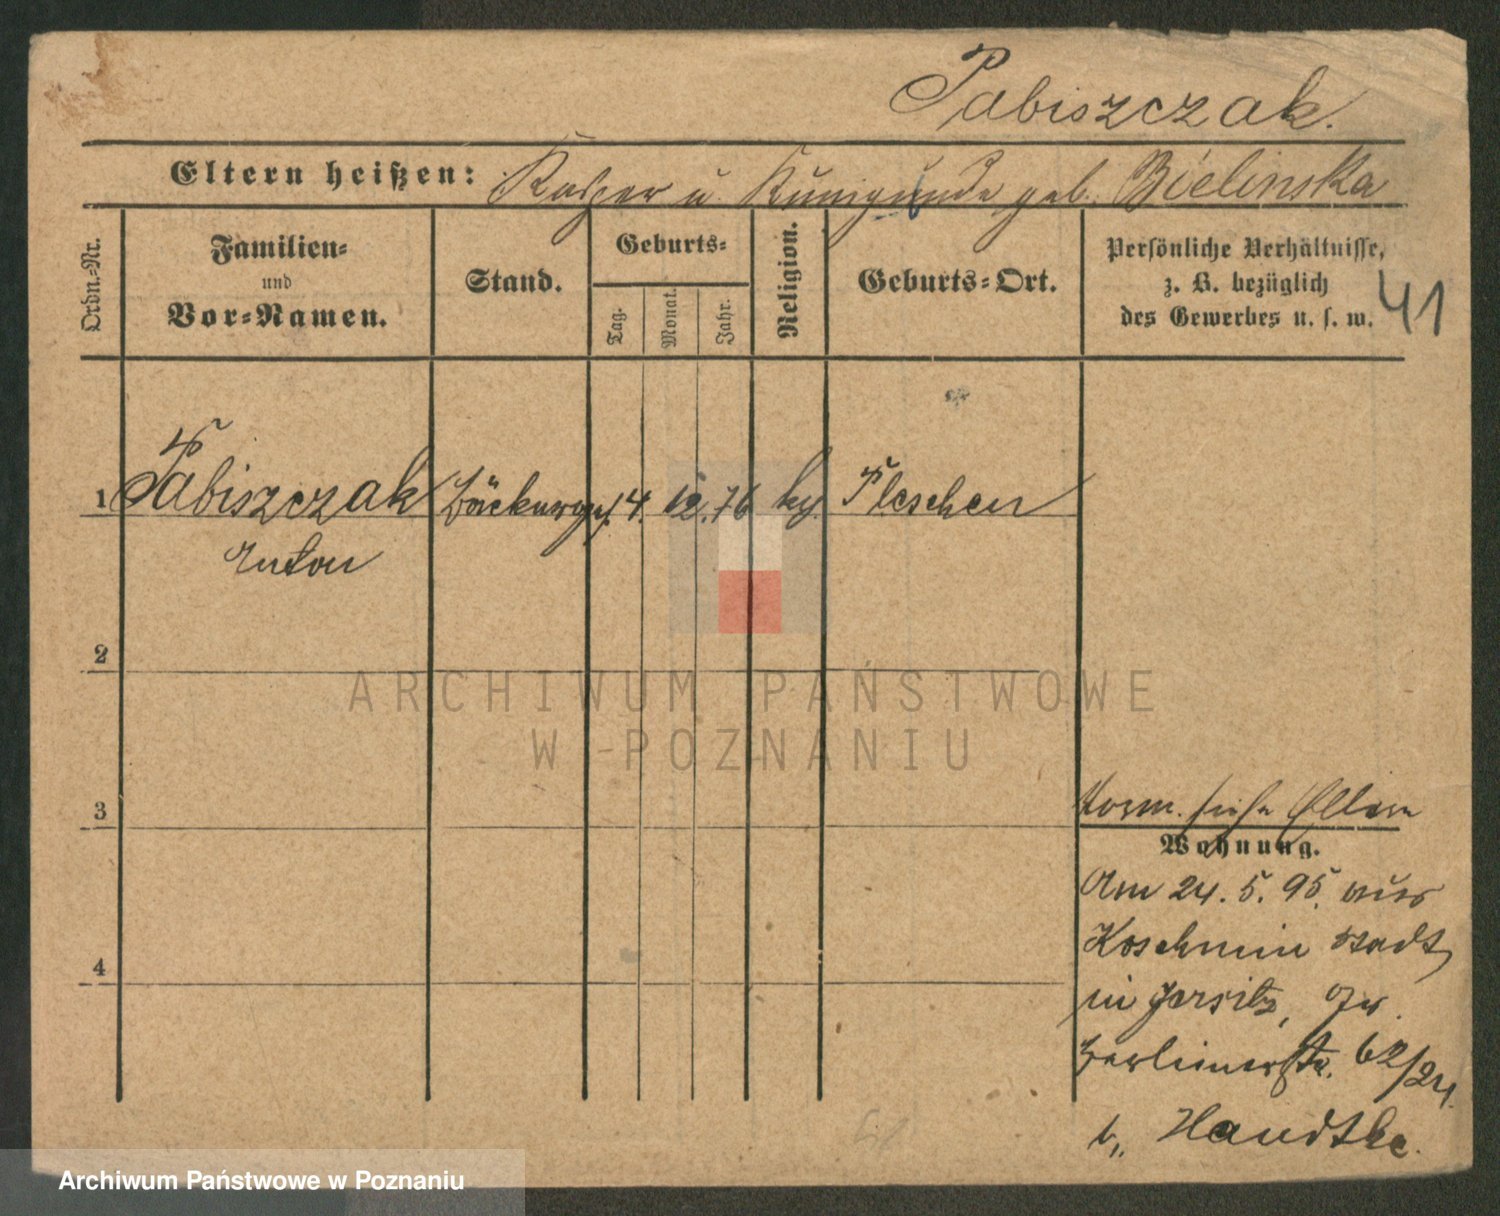 Pabiszczak.
Eltern heißen: Kasper u. Kunigunde geb. Bielinska
Ordn.-Nr.
Familien- und Vor-Namen.
Stand.
Geburts-
Tag.
Monat.
Jahr.
Religion.
Geburts-Ort.
Persönliche Verhältnisse,
z. B. bezüglich
des Gewerbes u. s. w.
41
1 Pabiszczak Bäckerges. 14. 12. 76 kth. Pleschen
Anton
2
3
4
Vorm. siehe Eltern
Wohnung.
Am 24. 5. 95. aus
Koschmin Stadt
in Jersitz, Gr.
Berlinerstr. 62/24.
b. Handtke.
ARCHIWUM PAŃSTWOWE
W POZNANIU
Archiwum Państwowe w Poznaniu